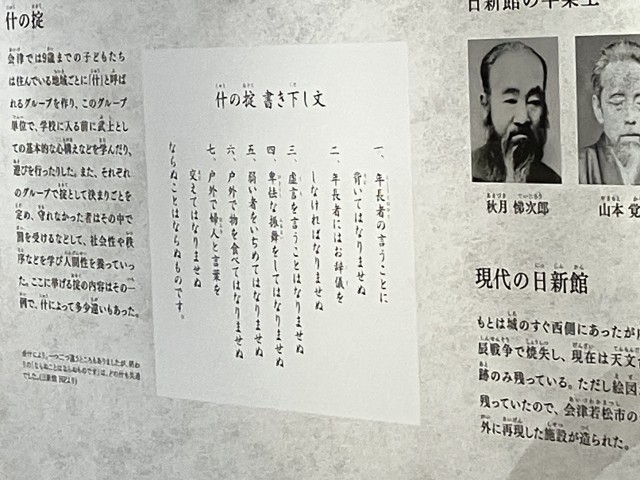 什の掟
会津では9歳までの子どもたち
は住んでいる地域ごとに「什」と呼ば
れるグループを作り、このグループ
単位で、学校に入る前に武士とし
ての基本的な心構えなどを学んだり、
遊びを行ったりした。また、それぞれ
のグループで掟として決まりごとを
定め、守れなかった者はその中で
罰を受けるなどして、社会性や秩
序などを学び人間性を養っていっ
た。ここに挙げる掟の内容はその一
例で、什によって多少違いもあった。
什の掟 書き下し文
一、年長者の言うことに
背いてはなりませぬ
二、年長者にはお辞儀を
しなければなりませぬ
三、虚言を言うことはなりませぬ
四、卑怯な振舞をしてはなりませぬ
五、弱い者をいぢめてはなりませぬ
六、戸外で物を食べてはなりませぬ
七、戸外で婦人と言葉を
交えてはなりませぬ
ならぬことはならぬものです。
日新館の卒業生
秋月 悌次郎
山本 覚
現代の日新館
もとは城のすぐ西側にあったが
辰戦争で焼失し、現在は天文
跡のみ残っている。ただし絵図
残っていたので、会津若松市の
外に再現した施設が造られた。